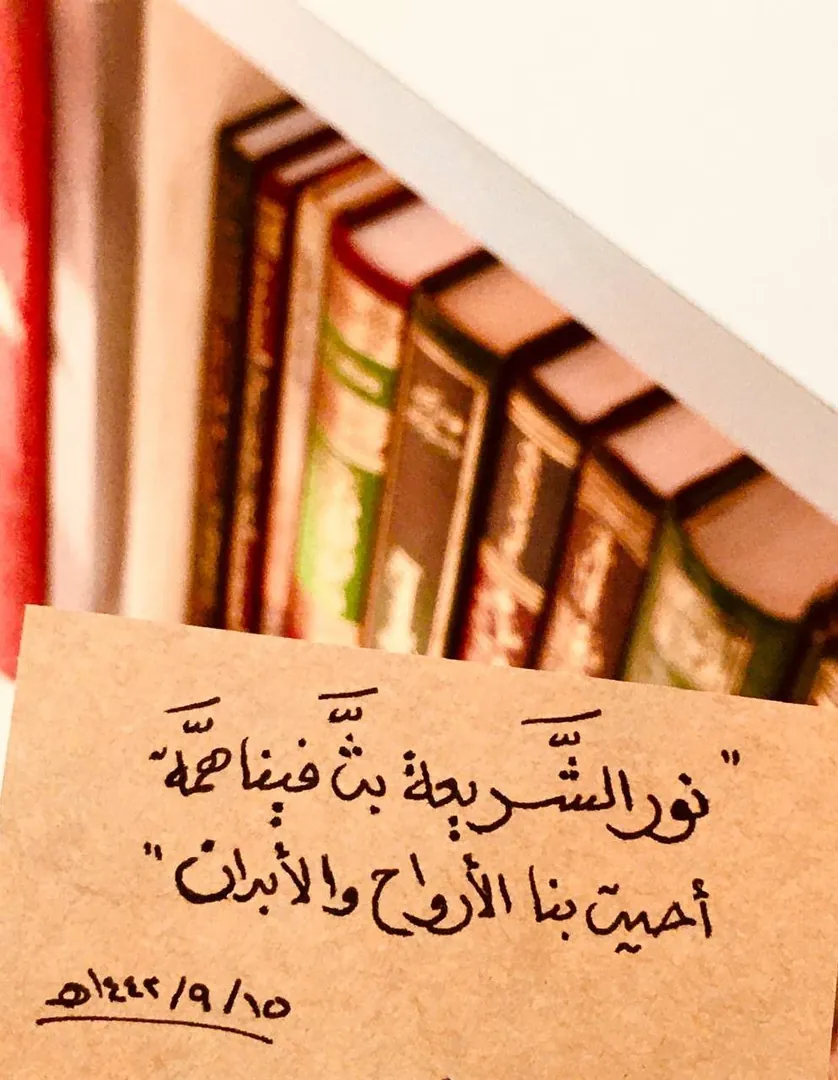 " نور الشَّريعة بثَّ فينا همَّة
أحيت بنا الأرواح والأبدان "
١٤٤٢/٩/١٥هـ